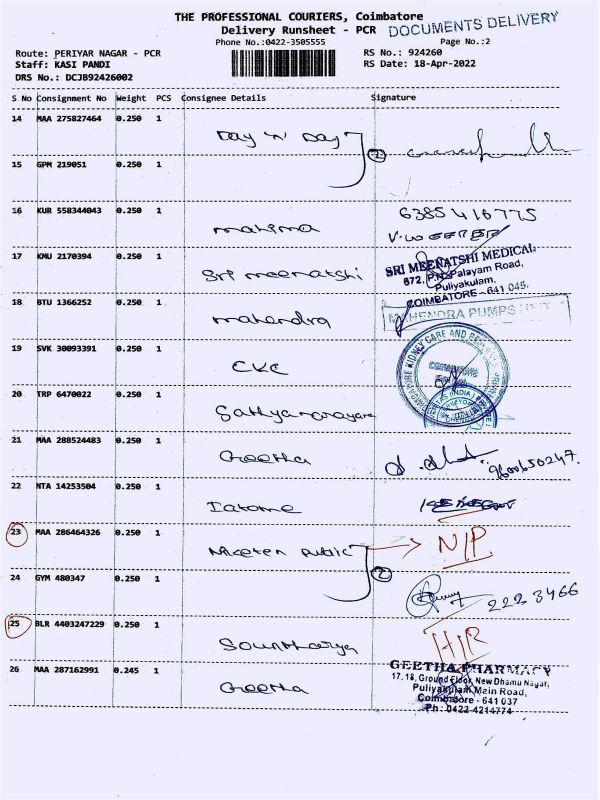 THE PROFESSIONAL COURIERS, Coimbatore
Delivery Runsheet - PCR
DOCUMENTS DELIVERY
Phone No.:0422-3505555
Page No.:2
Route: PERIYAR NAGAR - PCR
RS No.: 924260
Staff: KASI PANDI
RS Date: 18-Apr-2022
DRS No.: DCJB92426002
S No Consignment No Weight PCS Consignee Details Signature
14 MAA 275827464 0.250 1
Day 'n' Day
2
15 GPM 219051 0.250 1
16 KUR 558344043 0.250 1
6385416775
mahima
17 KMU 2170394 0.250 1
Sri meenatshi
SRI MEENATSHI MEDICAL
672, P.N. Palayam Road,
Puliyakulam,
COIMBATORE - 641 045.
18 BTU 1366252 0.250 1
mahendra
MAHENDRA PUMPS
19 SVK 30093391 0.250 1
CKC
KIDNEY CARE AND
20 TRP 6470022 0.250 1
Sathyanarayana
21 MAA 288524483 0.250 1
Geetha
9600650247.
22 NTA 14253504 0.250 1
23 MAA 286464326 0.250 1
Public
N/P
2
24 GYM 480347 0.250 1
222 3466
25 BLR 4403247229 0.250 1
Sountharya
H/R
26 MAA 287162991 0.245 1
Geetha
GEETHA PHARMACY
17, 18, Ground Floor, New Dhamu Nagar,
Puliyakulam Main Road,
Coimbatore - 641 037
Ph: 0422-4214774